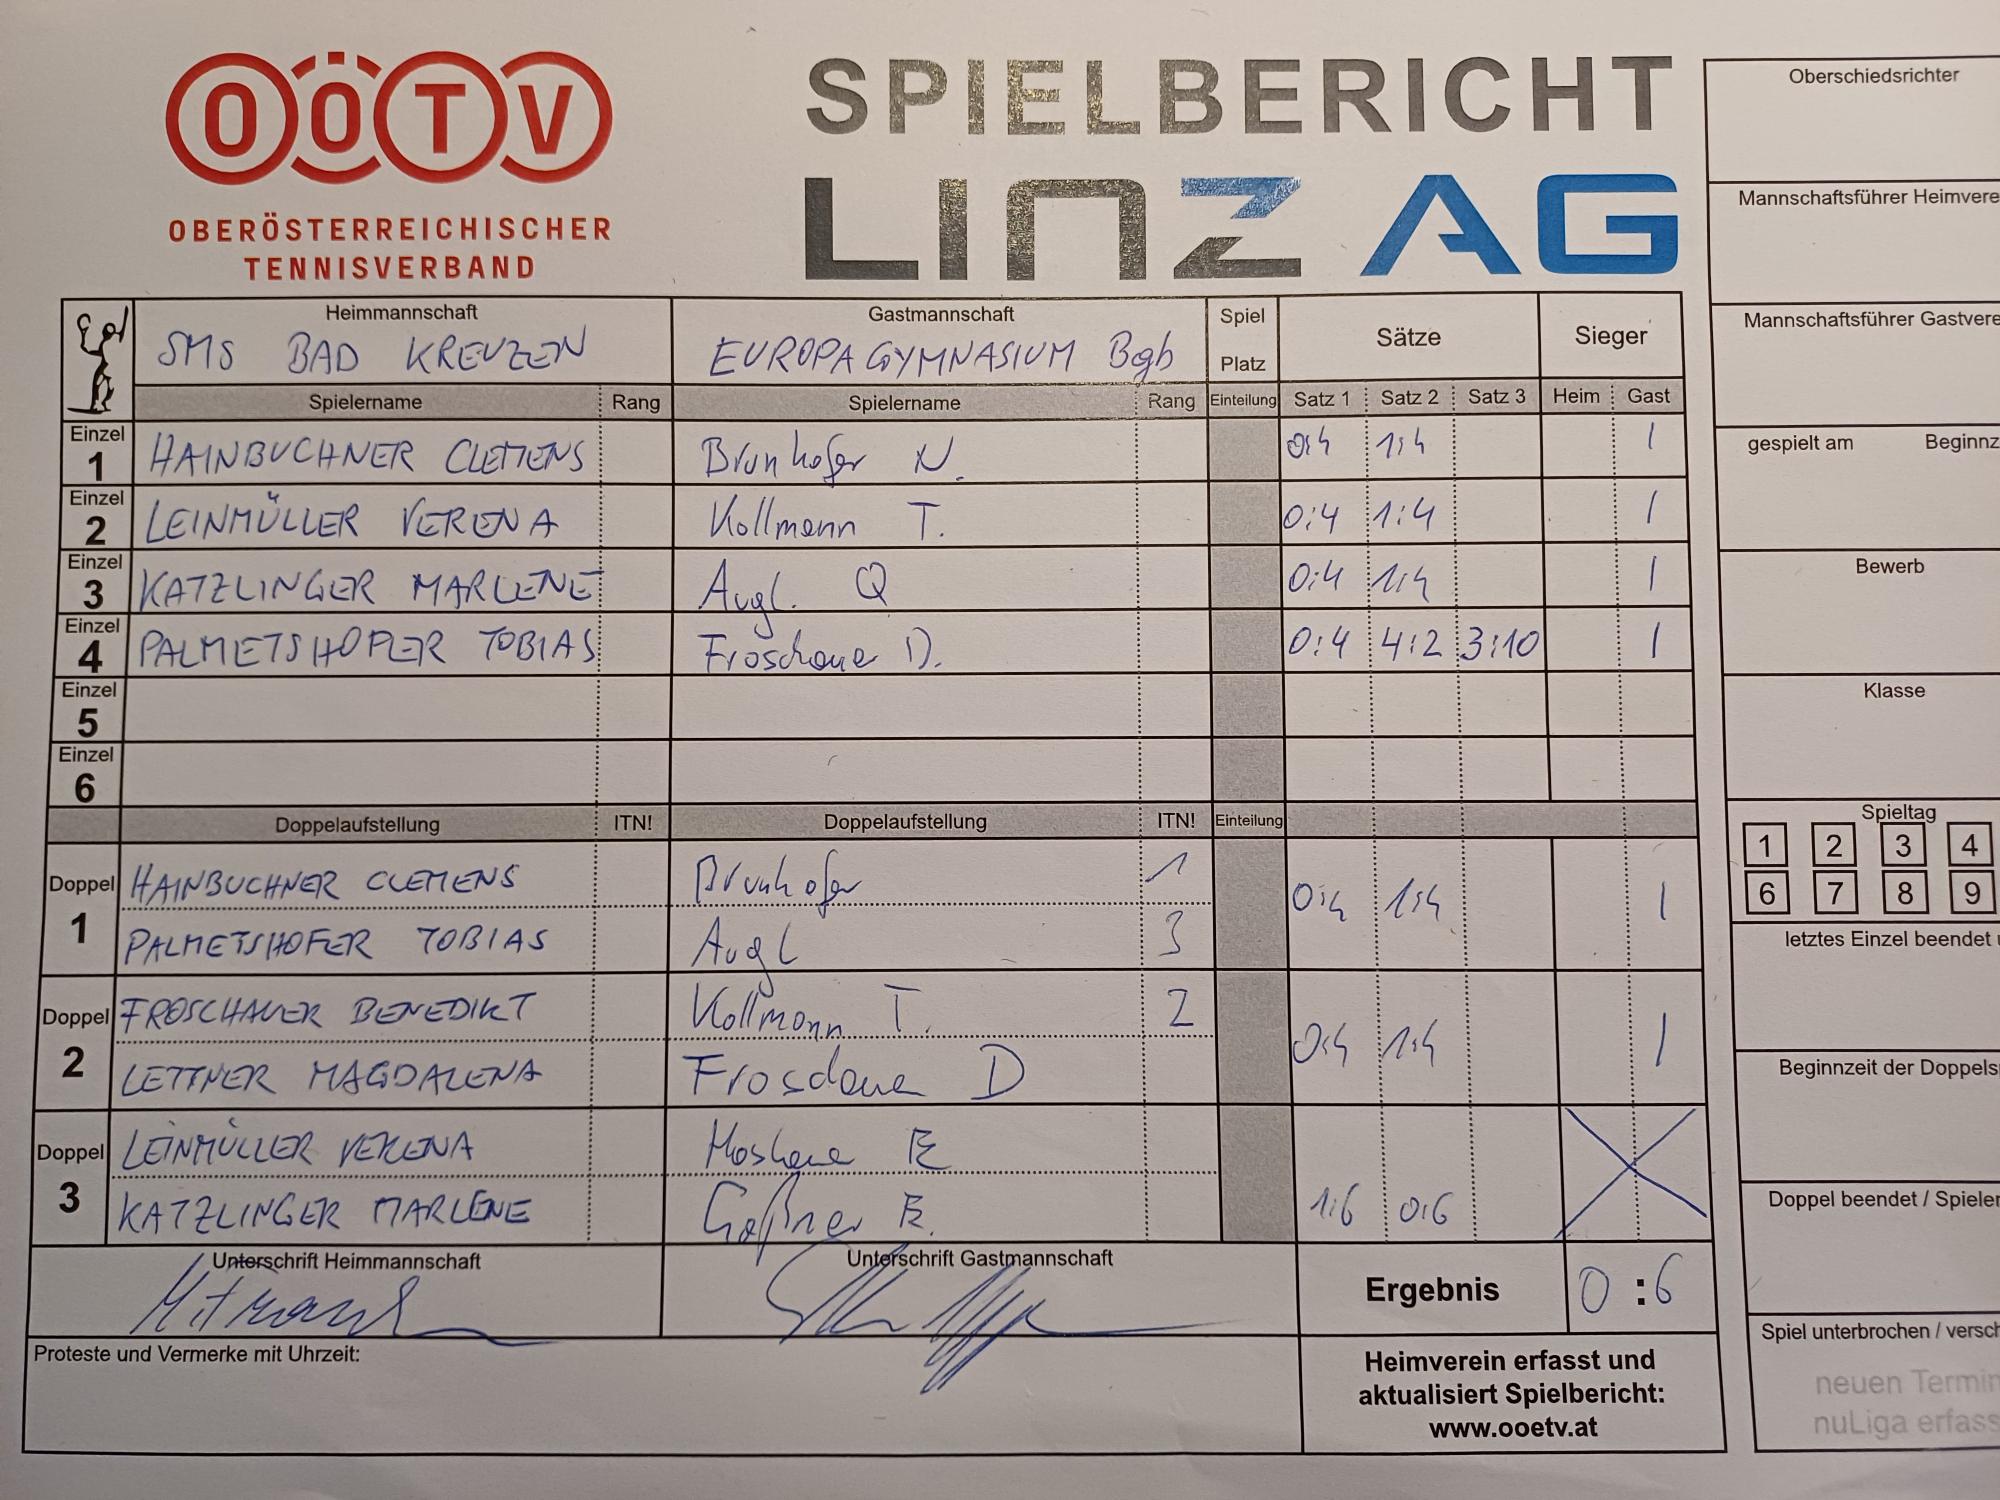 OÖTV
OBERÖSTERREICHISCHER
TENNISVERBAND
SPIELBERICHT
LINZ AG
Oberschiedsrichter
Mannschaftsführer Heimvere
Mannschaftsführer Gastvere
gespielt am Beginnz
Bewerb
Klasse
Spieltag
1 2 3 4
6 7 8 9
letztes Einzel beendet
Beginnzeit der Doppels
Doppel beendet / Spieler
Spiel unterbrochen / versch
neuen Termin
nuLiga erfass
Heimmannschaft Gastmannschaft Spiel Platz Sätze Sieger
SMS BAD KREUZEN EUROPAGYMNASIUM Bgb
Spielername Rang Spielername Rang Einteilung Satz 1 Satz 2 Satz 3 Heim Gast
Einzel 1 HAINBUCHNER CLEMENS Brunhofer N. 0:4 1:4 1
Einzel 2 LEINMÜLLER VERENA Kollmann T. 0:4 1:4 1
Einzel 3 KATZLINGER MARLENE Augl. Q 0:4 1:4 1
Einzel 4 PALMETSHOFER TOBIAS Froschaue D. 0:4 4:2 3:10 1
Einzel 5
Einzel 6
Doppelaufstellung ITN! Doppelaufstellung ITN! Einteilung
Doppel 1 HAINBUCHNER CLEMENS Brunhofer 1 0:4 1:4 1
PALMETSHOFER TOBIAS Augl 3
Doppel 2 FROSCHAUER BENEDIKT Kollmann T. 2 0:4 1:4 1
LETTNER MAGDALENA Froschaue D
Doppel 3 LEINMÜLLER VERENA
KATZLINGER MARLENE Gaßner E. 1:6 0:6
Unterschrift Heimmannschaft Unterschrift Gastmannschaft
Ergebnis 0 : 6
Proteste und Vermerke mit Uhrzeit:
Heimverein erfasst und
aktualisiert Spielbericht:
www.ooetv.at